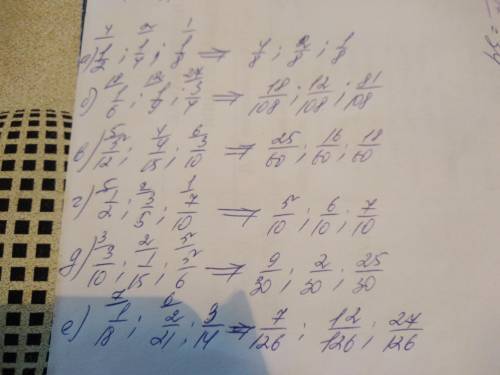 а) 4 1/2 ; 2 1/4 ; 1 1/8 => 4/8 ; 2/8 ; 1/8
б) 18 1/6 ; 12 1/9 ; 27 3/4 => 18/108 ; 12/108 ; 81/108
в) 5 5/12 ; 4 4/15 ; 6 3/10 => 25/60 ; 16/60 ; 18/60
г) 5 1/2 ; 2 3/5 ; 1 7/10 => 5/10 ; 6/10 ; 7/10
д) 3 3/10 ; 2 1/15 ; 5 5/6 => 9/30 ; 2/30 ; 25/30
е) 7 1/18 ; 6 2/21 ; 3/14 => 7/126 ; 12/126 ; 27/126